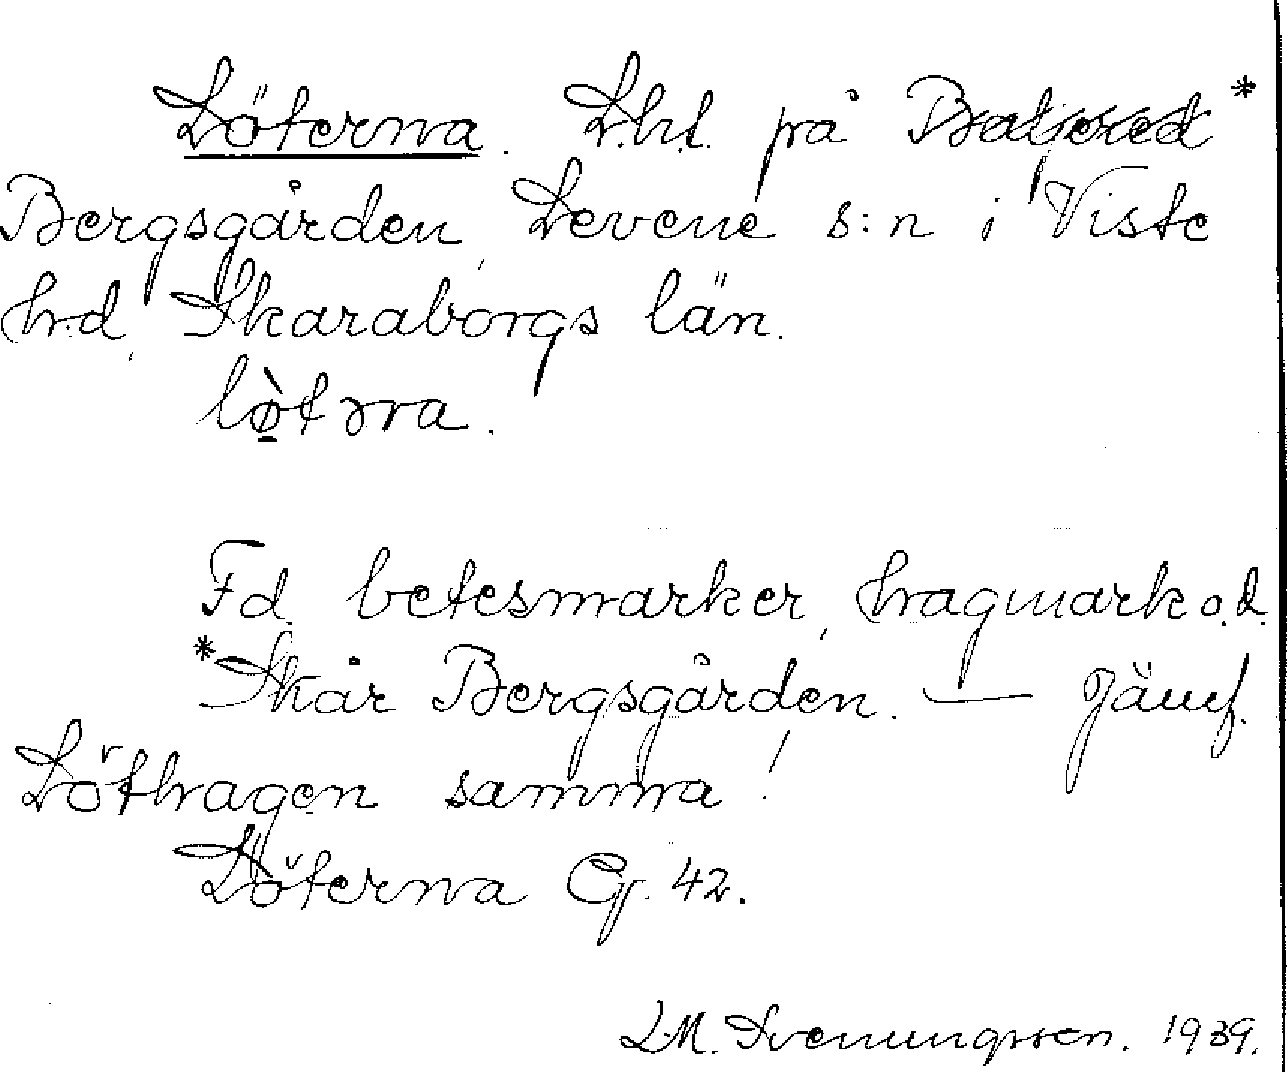 Löterna. L.h.l. på Baljered*
Bergsgården, Levene s:n i Viste
h:d, Skaraborgs län.
lø̀tərna.
Fd. betesmarker, hagmark o.d.
*Skår Bergsgården. — Jämf.
Löthagen samma!
Löterna G. 42.
L.M. Svenungsson. 1939.